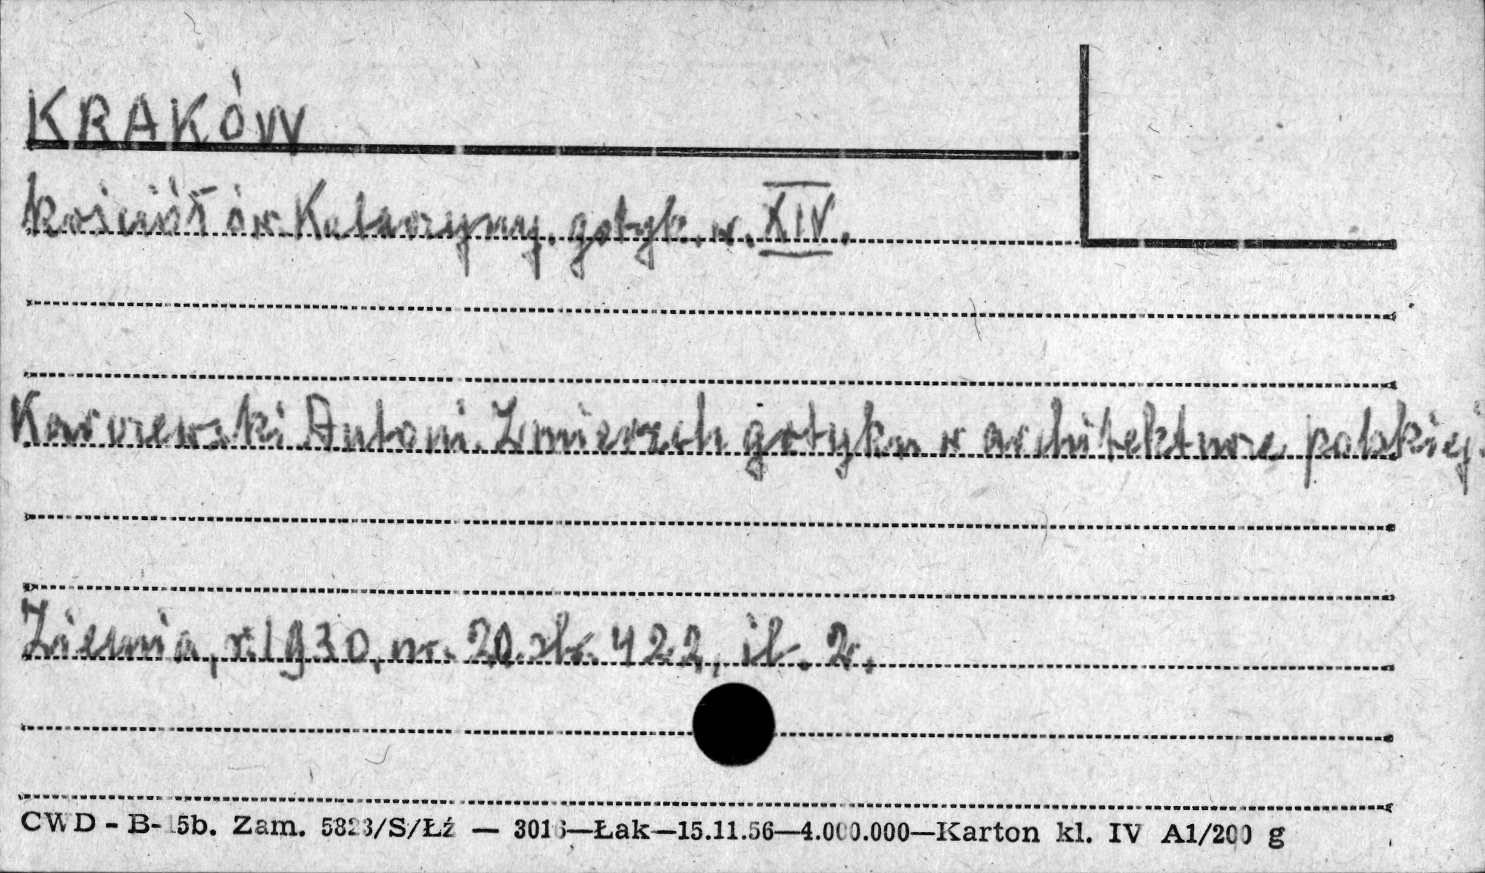 KRAKÓW
kościół św. Katarzyny. gotyk. w. XIV.
Karczewski Antoni. Zmierzch gotyku w architekturze polskiej.
Ziemia, r. 1930, nr. 20. str. 422, il. 2.
CWD - B-15b. Zam. 5823/S/Łź — 3016—Łak—15.11.56—4.000.000—Karton kl. IV A1/200 g